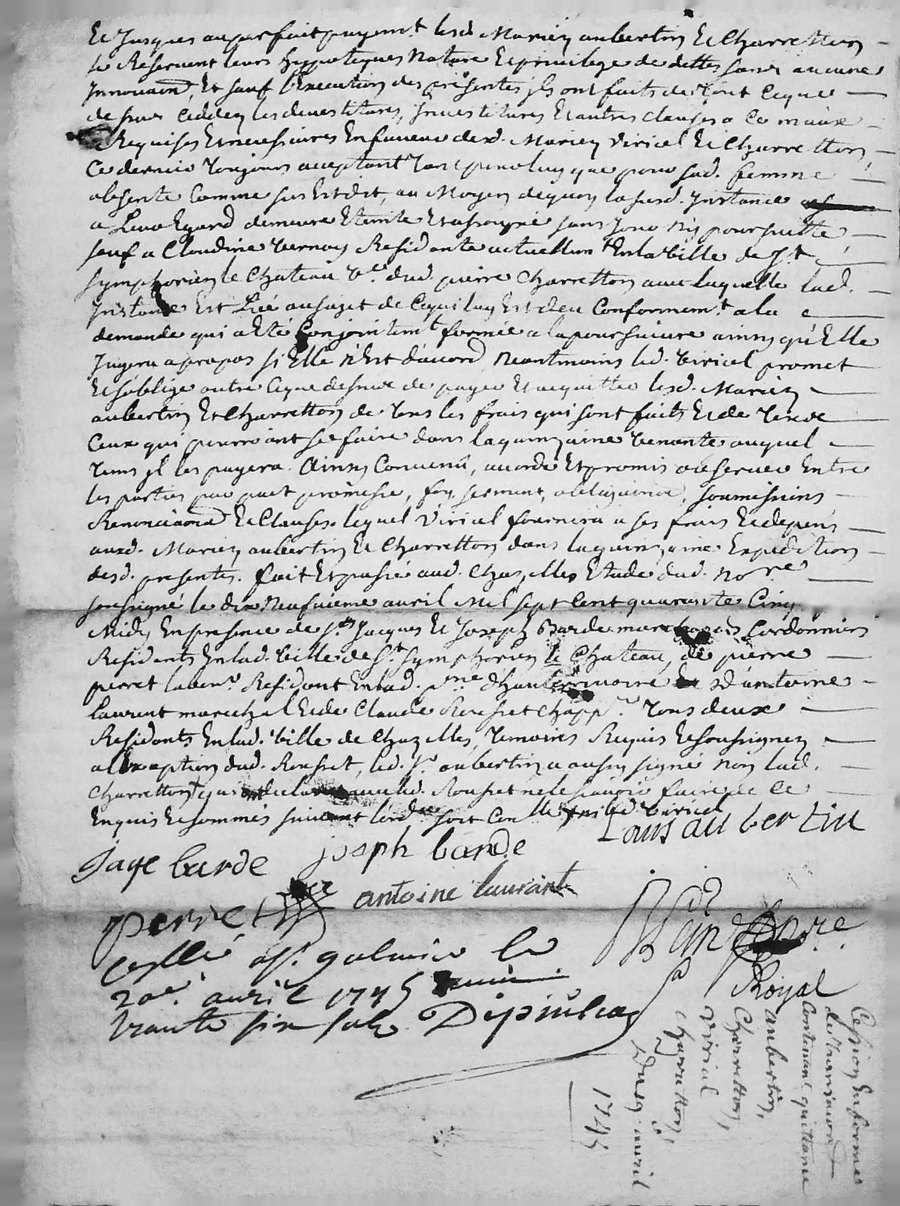 Et Jusques au parfait payement lesd. Mariez aubertin Et Charretton
se Reservent leurs hippoteques Nature Et privilege de dettes sans aucune
Innovaon, Et sauf l'Execution des presentes ils ont faits de tout ceque
de sus ceddez les devestitures, Investitures Et autres clauses a ce
Requises Et necessaires En faveur desd. Mariez viricel Et Charretton,
Ce dernier toujours acceptant tant pour luy que pour sad. femme
absente comme sus Est dit, au Moyen dequoy lasusd. Instance
a Leur Egard demeure Eteinte Et assoupie sans Jour Ny poursuitte
sauf a Claudine vernay Residante actuellemt En la ville de St
Symphorien le Chateau ve dud. pierre Charretton avec laquelle lad.
Instance Est Liée au sujet de cequi luy Est deu Conformemt a la
demande qui a Eté Conjointemt formée a la poursuivre ainsy qu'Elle
Jugera a propos si Elle n'Est d'accord, Neantmoins led. viricel promet
Et s'oblige outre ceque dessus de payer Et acquitter lesd. Mariez
aubertin Et Charretton de tous les frais qui sont faits Et de
Ceux qui pourroient se faire dans la quinzaine venante auquel
tems il les payera. Ainsy Convenu, accordé Et promis observer Entre
les parties par pact promesse, foy, serment, obligaon, soumissions
Renonciaons Et Clauses. lequel viricel fournira a ses frais Et depens
auxd. Mariez aubertin Et Charretton dans la quinzaine Expedition
desd. presentes. fait Et passé aud. Chazelles Etude dud. Nore
soussigné le dix Neufvieme avril Mil sept Cent quarante Cinq
Midy En presence de Srs Jacques Et Joseph Barde marchands Cordonniers
Residants En lad. ville de St Symphorien le Chateau, de pierre
perret Residant En lad. d'hauterivoire Sr antoine
laurent marechal Et de Claude Rousset tous deux
Residants En lad. ville de Chazelles, temoins Requis Et soussignez
a l'Exeption dud. Rousset, led. Sr aubertin a aussy signé Non lad.
Charretton qui ont declaré avec led. Rousset ne le sçavoir faire de ce
Enquis Et sommés suivant lordce Et led. viricel
Louis aubertin
Jaque barde
joseph barde
perret
antoine laurant
Nore
Royal
le
20e. avril 1745
trante six sols
Cession En forme
de transaction
Contenant quittance
aubertin,
Charretton,
viricel
Charretton,
Du 19e avril
1745